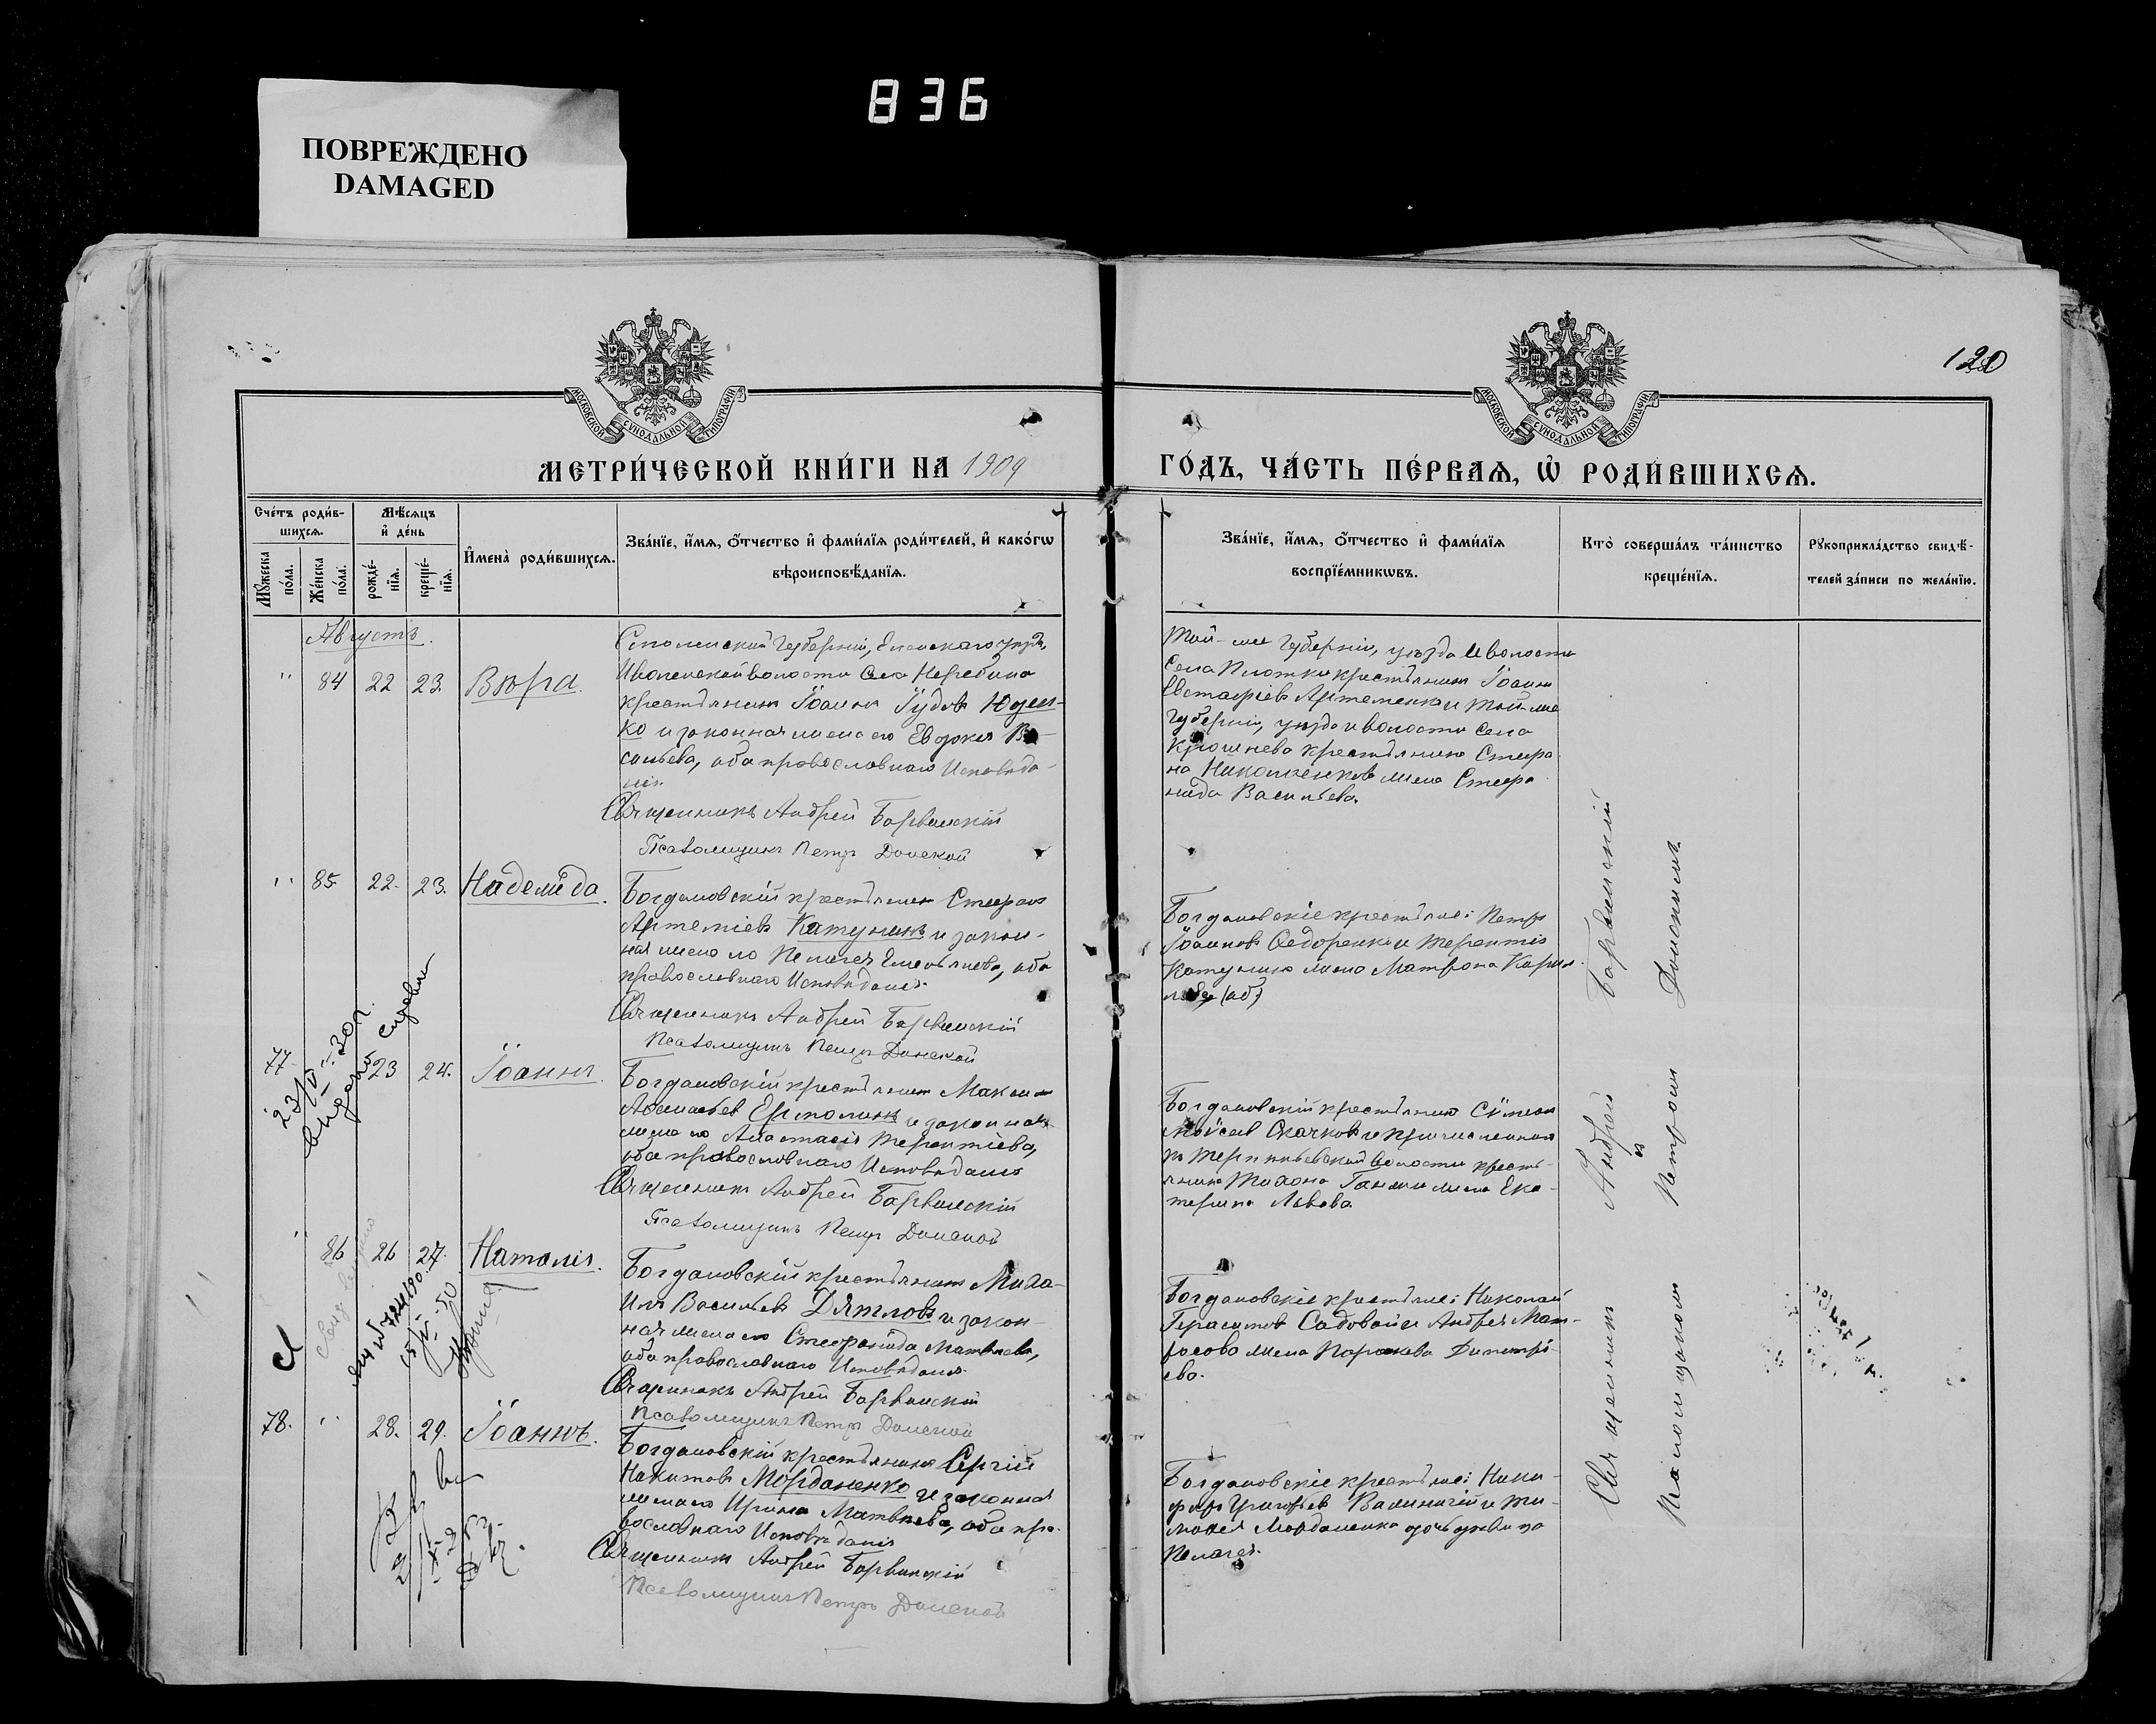 836
ПОВРЕЖДЕНО
DAMAGED
120
МОСКОВСКОЙ СѴНОДАЛЬНОЙ ТИПОГРАФІИ
МОСКОВСКОЙ СѴНОДАЛЬНОЙ ТИПОГРАФІИ
МЕТРИ́ЧЕСКОЙ КНИ́ГИ НА 1909
ГО́ДЪ, ЧА́СТЬ ПЕ́РВАѦ, Ѡ҆ РОДИ́ВШИХСѦ.
Сче́тъ роди́в-
шихсѧ.
Мꙋ́жеска
по́ла.
Же́нска
по́ла.
Мѣ́сѧцъ
и҆ де́нь
рожде́-
нїѧ.
креще́-
нїѧ.
И҆мена̀ роди́вшихсѧ.
Зва́нїе, и҆́мѧ, ѻ҆́тчество и҆ фами́лїѧ роди́телей, и҆ како́гѡ
вѣроисповѣ́данїѧ.
Зва́нїе, и҆́мѧ, ѻ҆́тчество и҆ фами́лїѧ
воспрїе́мникѡвъ.
Кто̀ соверша́лъ та́инство
креще́нїѧ.
Рꙋкоприкла́дство свидѣ́-
телей за́писи по жела́нїю.
Августъ.
84 22 23. Вѣра.
Смоленской губерніи, Еленскаго уѣзда,
волости села
крестьянинъ Іоаннъ Іудовъ Юден-
ко и законная жена его Евдокія Ва-
сильева, оба православнаго Исповѣда-
нія.
Священникъ Андрей Барвинскій
Псаломщикъ Петръ Донской
Той-же губерніи, уѣзда и волости
села Плотки крестьянинъ Іоаннъ
Евстафіевъ Артеменко и той-же
губерніи, уѣзда и волости села
крестьянина Стефа-
на жена Стефа-
нида Васильева.
85. 22. 23. Надежда.
Богдановскій крестьянинъ Стефанъ
Артеміевъ Катунинъ и закон-
ная жена его Пелагея Емельянова, оба
православнаго Исповѣданія.
Священникъ Андрей Барвинскій
Псаломщикъ Петръ Донской
Богдановскіе крестьяне: Петръ
Іоанновъ Федоренко и Терентія
Катунина жена Матрона
77. 23 24. Іоаннъ.
Богдановскій крестьянинъ Максимъ
Ермолинъ и законная
жена его Анастасія Терентіева,
оба православнаго Исповѣданія
Священникъ Андрей Барвинскій
Псаломщикъ Петръ Донской
Богдановскій крестьянинъ Сѵмеонъ
Моѵсеев Скачковъ и
волости кресть-
янина Тихона жена Ека-
терина Львова.
86 26 27. Наталія.
Богдановскій крестьянинъ Миха-
илъ Васильевъ Дятловъ и закон-
ная жена его Стефанида Матвѣева,
оба православнаго Исповѣданія.
Священникъ Андрей Барвинскій
Псаломщикъ Петръ Донской
Богдановскіе крестьяне: Николай
Герасимовъ Садовой и Андрея Мат-
росова жена Параскева Димитрі-
ева.
78. 28. 29. Іоаннъ.
Богдановскій крестьянинъ Сергій
Никитовъ Морданенко и законная
жена его Ирина Матвѣева, оба пра-
вославнаго Исповѣданія
Священникъ Андрей Барвинскій
Псаломщикъ Петръ Донской
Богдановскіе крестьяне: Ники-
форъ Григорьевъ и Ти-
мофея Морданенко дочь дѣвица
Пелагея.
Священникъ Андрей Барвинскій
съ
Псаломщикомъ Петромъ Донскимъ